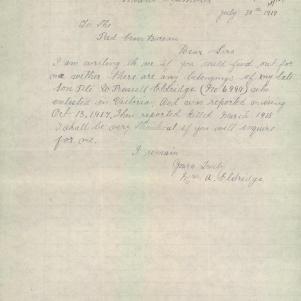 july 30th 1919
To The
Red Cross Bureau
Dear Sirs
I am writing to see if you would find out for
me wether there are any belongings of my late
son Pte W Russell Eldridge (No 6990) who
enlisted in Victoria. And was reported missing
Oct 13, 1917, Then reported killed March 1918
I shall be very thankful if you will enquire
for me.
I remain
Yours Truly
Mrs A. Eldridge